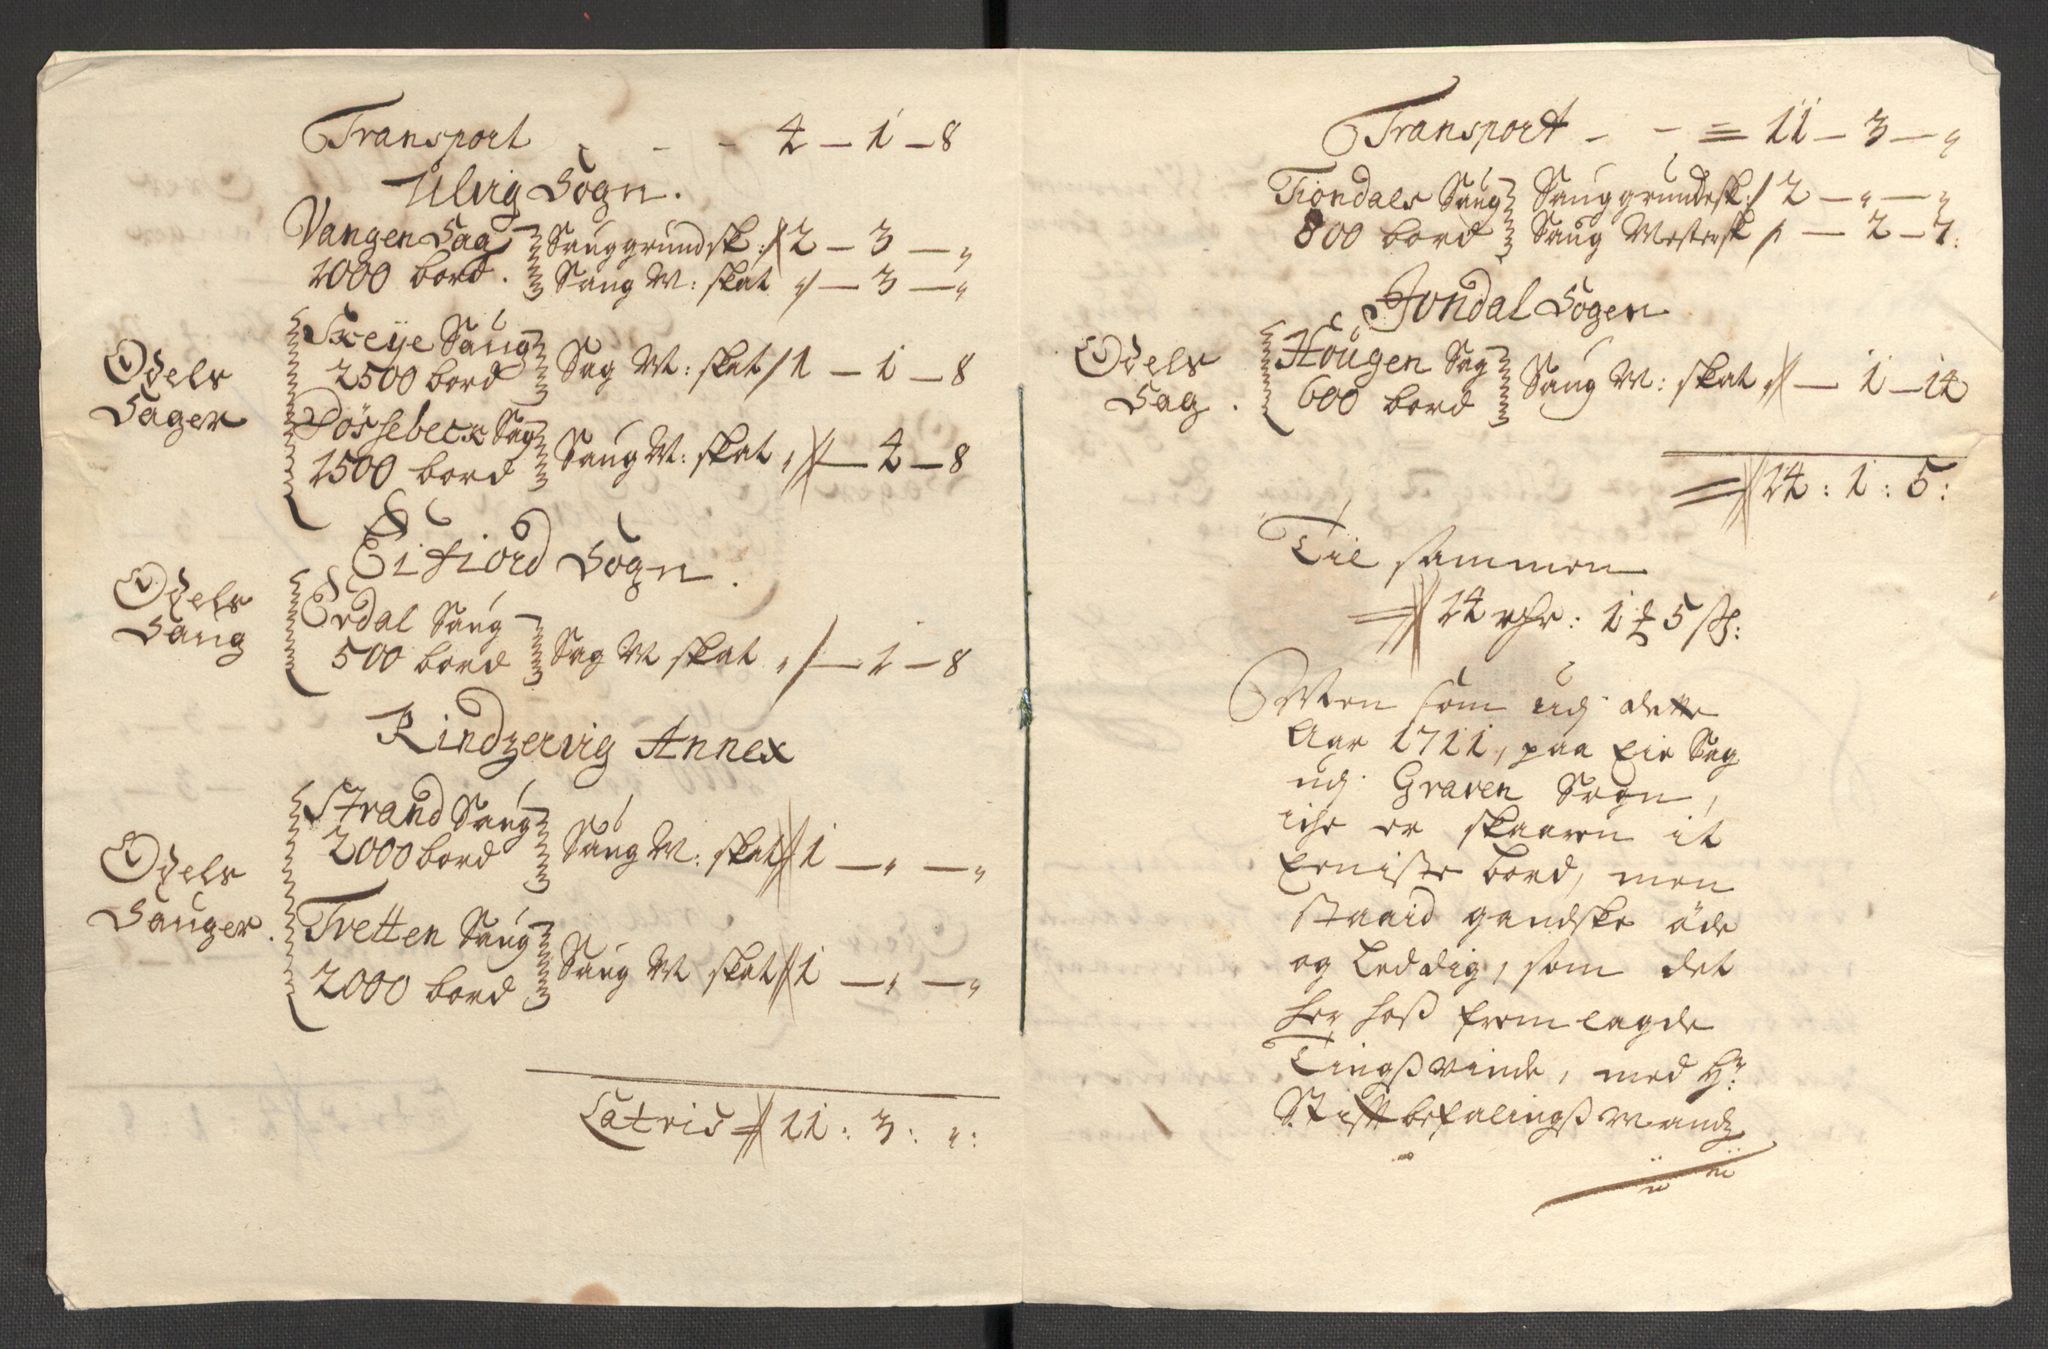 Transport - - - 4 - 1 - 8
Ulvig Sogn.
Vangen Sag Sauggrundsk: 2 - 3 - „
1000 bord. Saug M: skat „ - 3 - „
Odels
Sager
Skeÿe Saug
2500 bord Sag M: skat 1 - 1 - 8
Døssebeck Sag
1500 bord Saug M: skat „ - 4 - 8
Eifiord Sogn.
Odels
Saug
Erdal Saug
500 bord Sag M skat „ - 1 - 8
Kindzervig Annex
Odels
Sauger.
Strand Saug
2000 bord Saug M: skat 1 - „ - „
Tvetten Saug
2000 bord Saug M skat 1 - „ - „
Latris 11 : 3 : „ :
Transport - - = 11 - 3 - „
Tiondals Saug Sauggrundesk: 2 - „ - „
800 bord Saug Mestersk „ - 2 - 7:
Jondal Sogen
Odels
Sag.
Hougen Sag
600 bord Saug M: skat „ - 1 - 14
= 14 : 1 : 5 :
Til sammen
= 14 rdr: 1 ₰ 5 sk:
Men som udj dette
Aar 1711, paa Eie Sag
udj Graven Sogn,
iche er skaaren it
Eeniste bord, men
staaid gandske øde
og Leddig, som det
her hoß fremlagde
Tingßvinde, med Hr:
Stiftbefalingßmandz